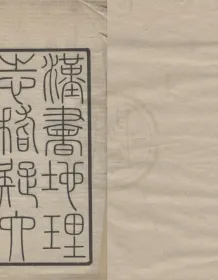 漢書地理
志稽疑六